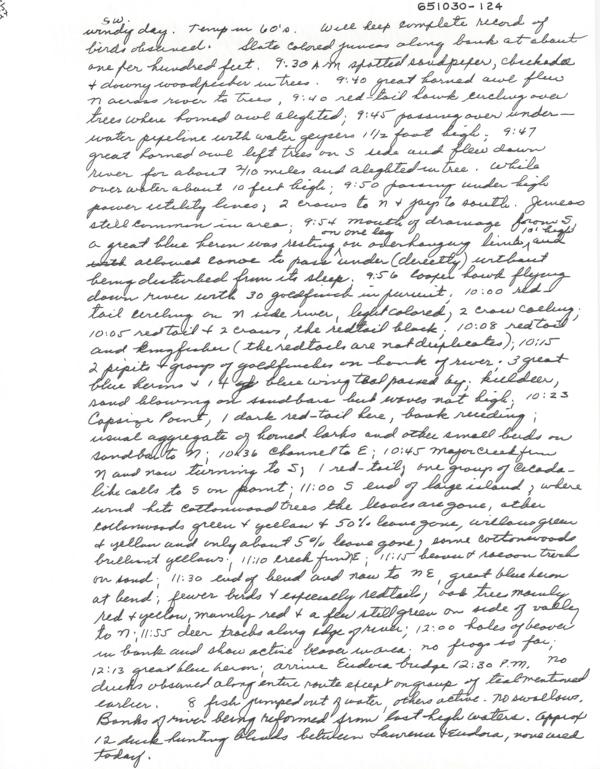 651030-124
S.W.
windy day. Temp in 60's. Will keep complete record of
birds observed. Slate colored juncos along bank at about
one per hundred feet. 9:30 AM spotted sandpiper, chickadee
& downy woodpecker in trees. 9:40 great horned owl flew
N across river to trees, 9:40 red-tail hawk circling over
trees where horned owl alighted; 9:45 passing over under-
water pipeline with water geysers 1 1/2 foot high; 9:47
great horned owl left trees on S side and flew down
river for about 2/10 miles and alighted in tree. While
over water about 10 feet high; 9:50 passing under high
power utility lines; 2 crows to N & jays to south. Juncos
still common in area; 9:54 mouth of drainage from S
a great blue heron was resting on one leg on overhanging limb, 10' high and
allowed canoe to pass under (directly) without
being disturbed from its sleep. 9:56 Cooper hawk flying
down river with 30 goldfinch in pursuit; 10:00 red
tail circling on N side river, light colored; 2 crow calling;
10:05 red tail & 2 crows, the redtail black; 10:08 red tail
and kingfisher (the redtails are not duplicates); 10:15
2 pipits & group of goldfinches on bank of river. 3 great
blue herons & 14 blue wing teal passed by; killdeer,
sand blowing on sandbars but waves not high; 10:23
Capsize Point, 1 dark red-tail here, bank receding;
usual aggregate of horned larks and other small birds on
sandbar to N; 10:36 channel to E; 10:45 major creek from
N and now turning to S; 1 red-tail; one group of cicada-
like calls to S on point; 11:00 S end of large island; where
wind hits cottonwood trees the leaves are gone, other
cottonwoods green & yellow & 50% leave gone, willows green
& yellow and only about 5% leave gone; some cottonwoods
brilliant yellows; 11:10 creek from E; 11:15 beaver & racoon track
on sand; 11:30 end of bend and now to NE, great blue heron
at bend; fewer birds & especially redtails; oak trees mainly
red & yellow, mainly red & a few still green on side of valley
to N; 11:55 deer tracks along edge of river; 12:00 holes of beaver
in bank and show active beaver in area; no frogs so far;
12:13 great blue heron; arrive Eudora bridge 12:30 P.M. No
ducks observed along entire route except on group of teal mentioned
earlier. 8 fish jumped out of water, others active. No swallows.
Banks of river being reformed from last high waters. Approx
12 duck hunting blinds between Lawrence & Eudora, none used
today.